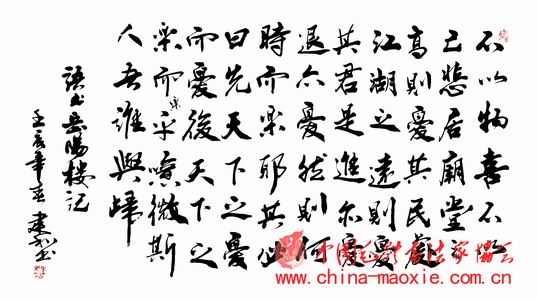 不以物喜不以
己悲居廟堂之
高則憂其民處
江湖之遠則憂
其君是進亦憂
退亦憂然則何
時而樂耶其必
曰先天下之憂
而憂後天下之
樂而樂乎噫微斯
人吾誰與歸
语出岳陽樓记
壬辰年春 建书
中国毛体书法家协会
www.china-maoxie.com